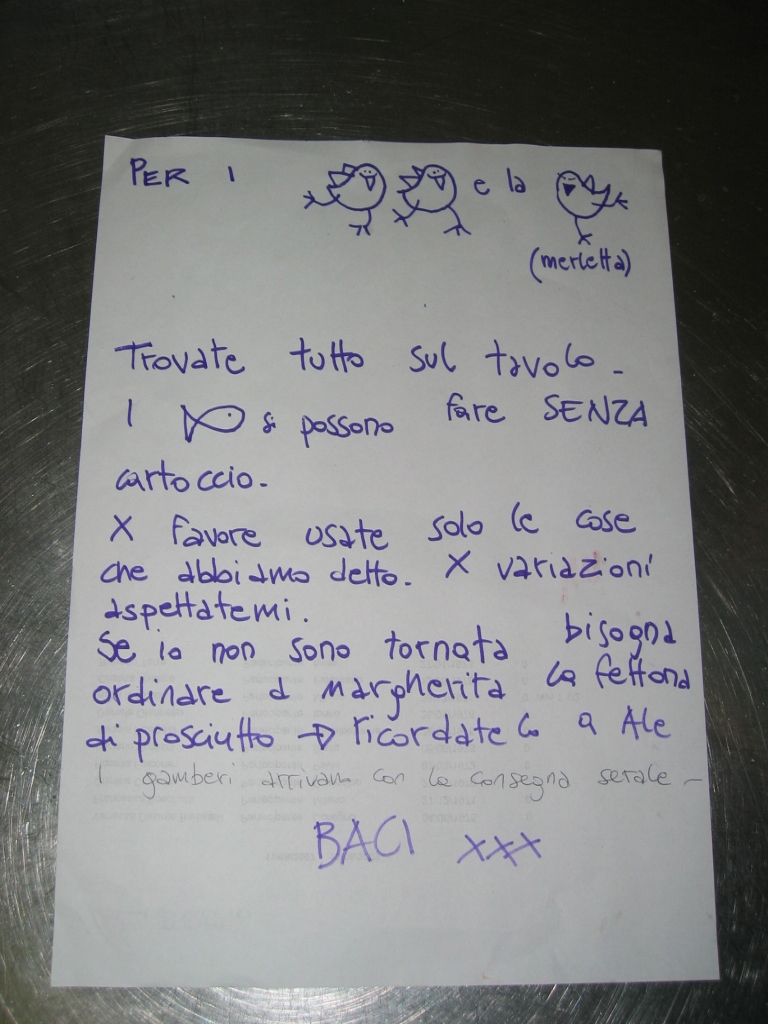 PER I e la
(merletta)
Trovate tutto sul tavolo -
I si possono fare SENZA
cartoccio.
X favore usate solo le cose
che abbiamo detto. X variazioni
aspettatemi.
Se io non sono tornata bisogna
ordinare a margherita la fettona
di prosciutto → ricordatelo a Ale
I gamberi arrivano con la consegna serale -
BACI xxx